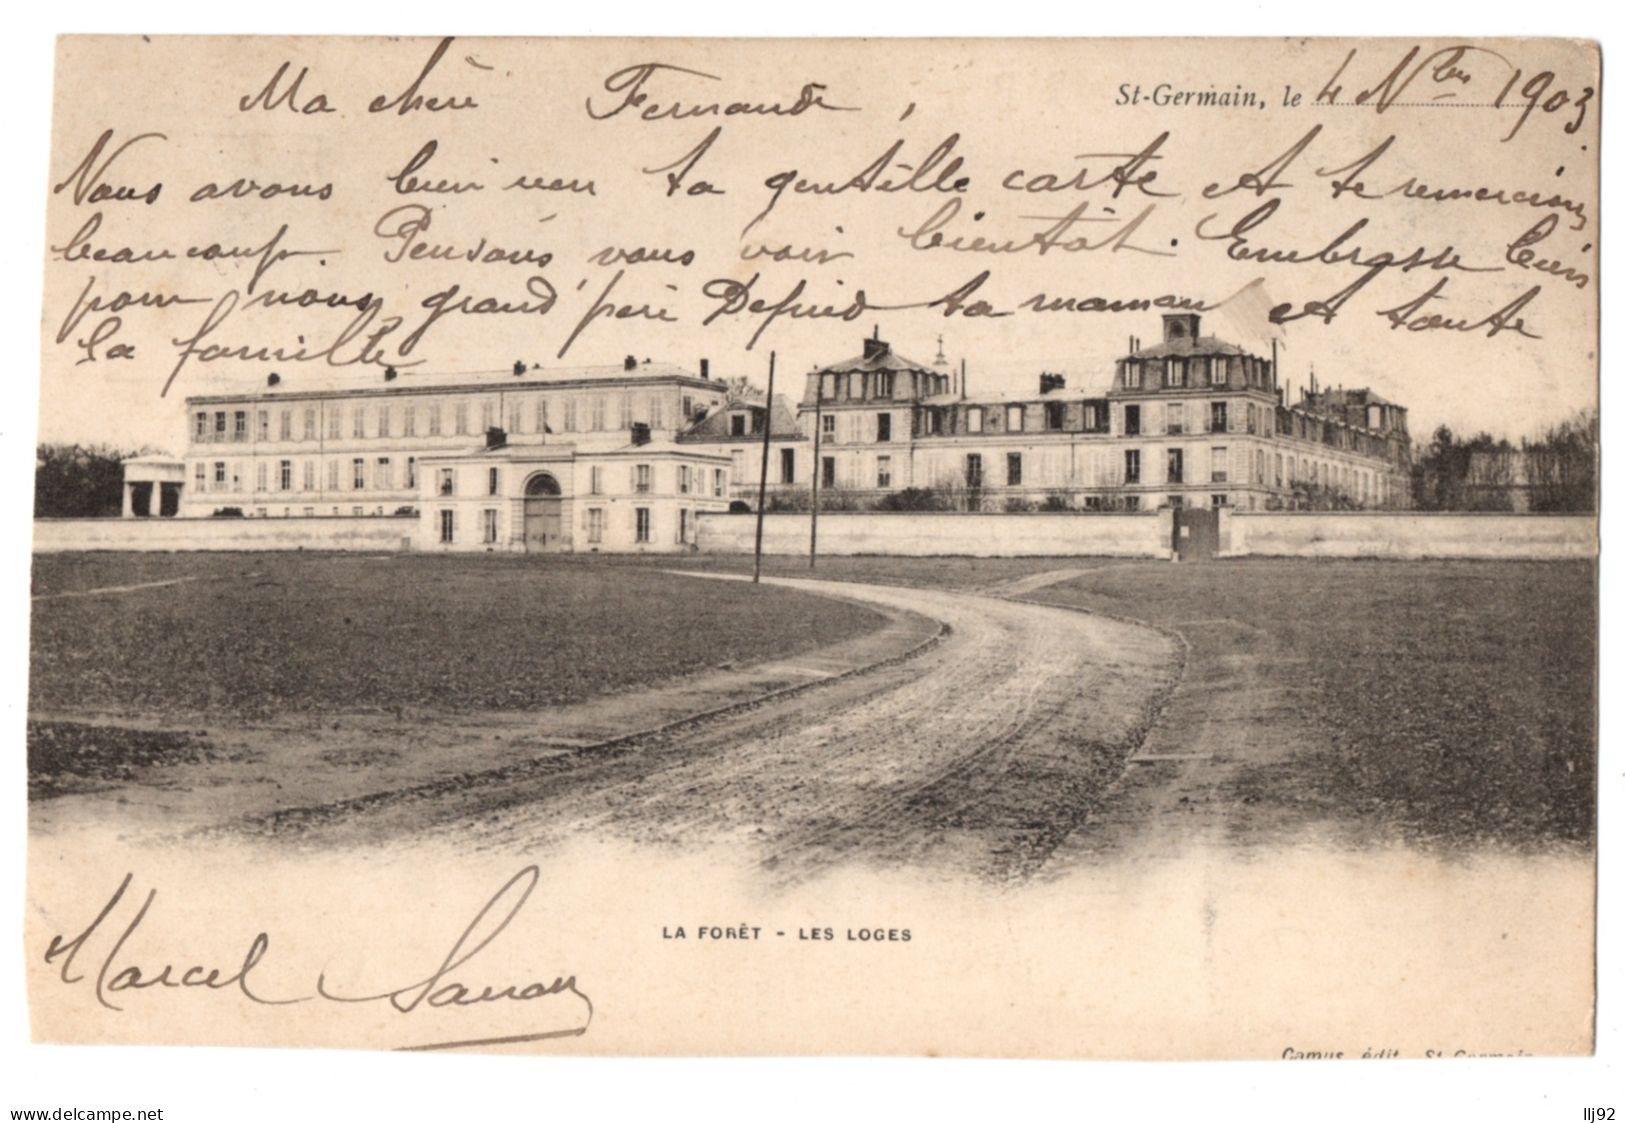 St-Germain, le 4 Nbre 1903
Ma chère Fernande,
Nous avons bien reçu ta gentille carte et te remercions
beaucoup. Pensons vous voir bientôt. Embrasse bien
pour nous grand'père ta maman et toute
la famille
LA FORÊT - LES LOGES
Marcel
Camus, édit. St-Germain
www.delcampe.net
llj92